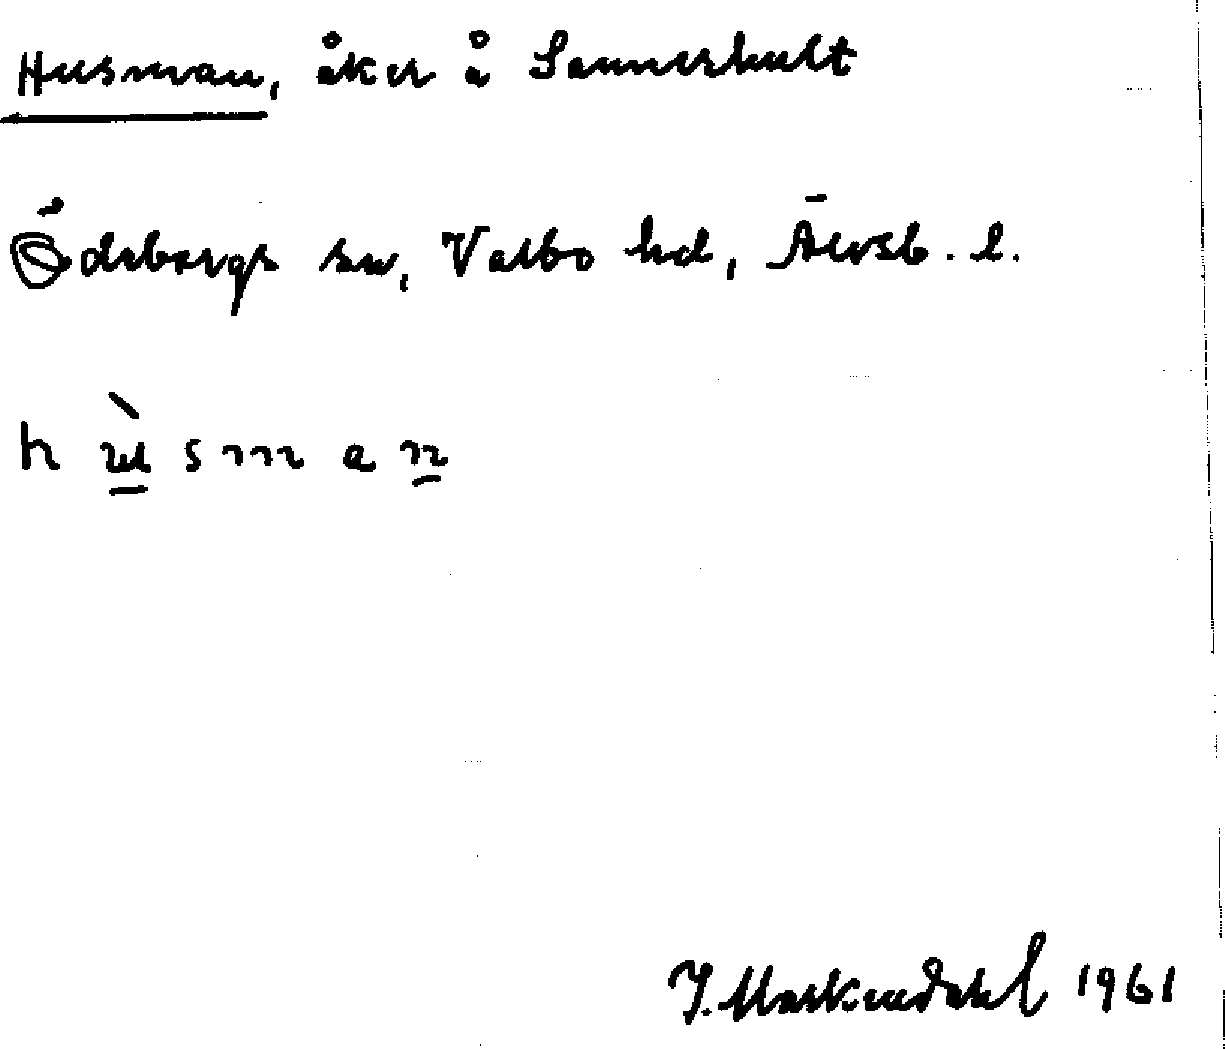 Husman, åker å Sannerhult
Ödeborgs sn, Valbo hd, Älvsb. l.
h ù s m a n
J. Markendahl 1961